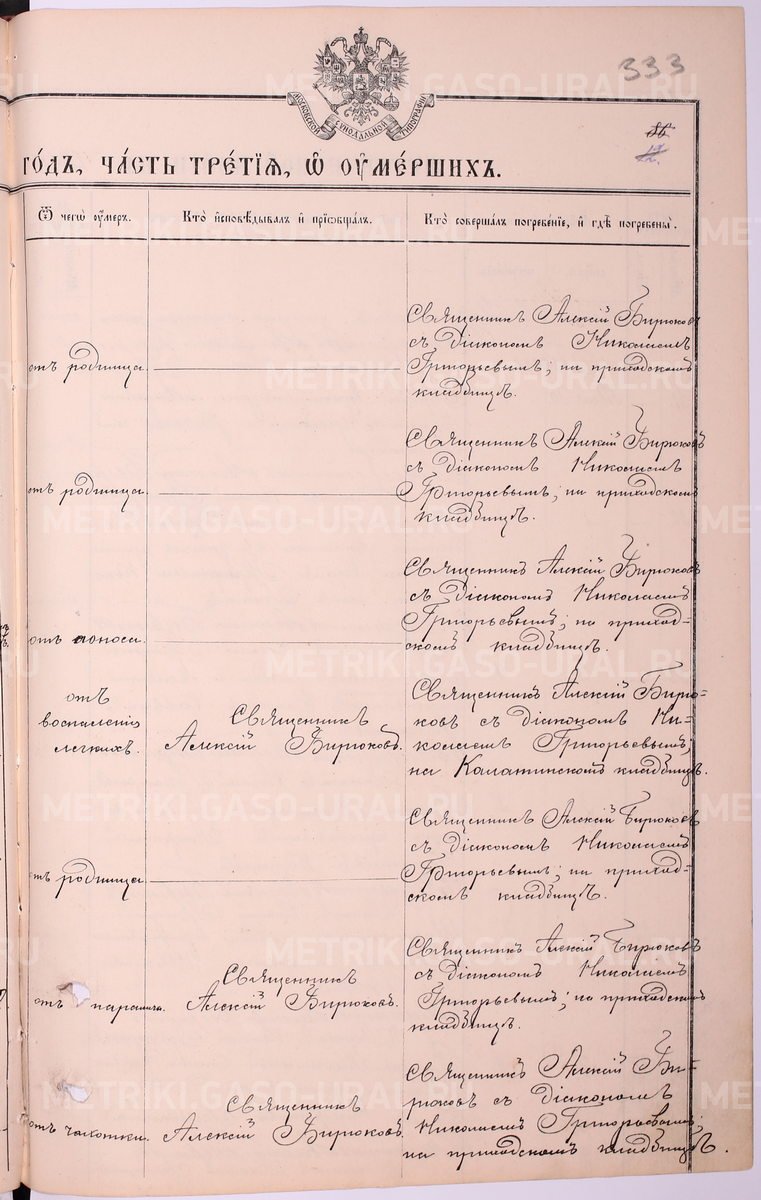 333
МОСКОВСКОЙ СѴНОДАЛЬНОЙ ТИПОГРАФІИ
86
12.
го́дъ, ча́сть тре́тїѧ, ѡ҆ ᲂу҆ме́ршихъ.
Ѿ чегѡ̀ ᲂу҆́меръ.
Кто̀ и҆сповѣ́дывалъ и҆ прїѡбща́лъ.
Кто̀ соверша́лъ погребе́нїе, и҆ гдѣ̀ погребены̀.
отъ родимца.
Священникъ Алексій Бирюковъ
съ діакономъ Николаемъ
Григорьевымъ; на приходскомъ
кладбищѣ.
отъ родимца.
Священникъ Алексій Бирюковъ
съ діакономъ Николаемъ
Григорьевымъ; на приходскомъ
кладбищѣ.
отъ поноса.
Священникъ Алексій Бирюковъ
съ діакономъ Николаемъ
Григорьевымъ; на приход-
скомъ кладбищѣ.
отъ
воспаленія
легкихъ.
Священникъ
Алексій Бирюковъ.
Священникъ Алексій Бирю-
ковъ съ діакономъ Ни-
колаемъ Григорьевымъ;
на Калатинскомъ кладбищѣ.
отъ родимца.
Священникъ Алексій Бирюковъ
съ діакономъ Николаемъ
Григорьевымъ; на приход-
скомъ кладбищѣ.
отъ паралича.
Священникъ
Алексій Бирюковъ.
Священникъ Алексій Бирюковъ
съ діакономъ Николаемъ
Григорьевымъ; на приходскомъ
кладбищѣ.
отъ чахотки.
Священникъ
Алексій Бирюковъ.
Священникъ Алексій Би-
рюковъ съ діакономъ
Николаемъ Григорьевымъ;
на приходскомъ кладбищѣ.
METRIKI.GASO-URAL.RU